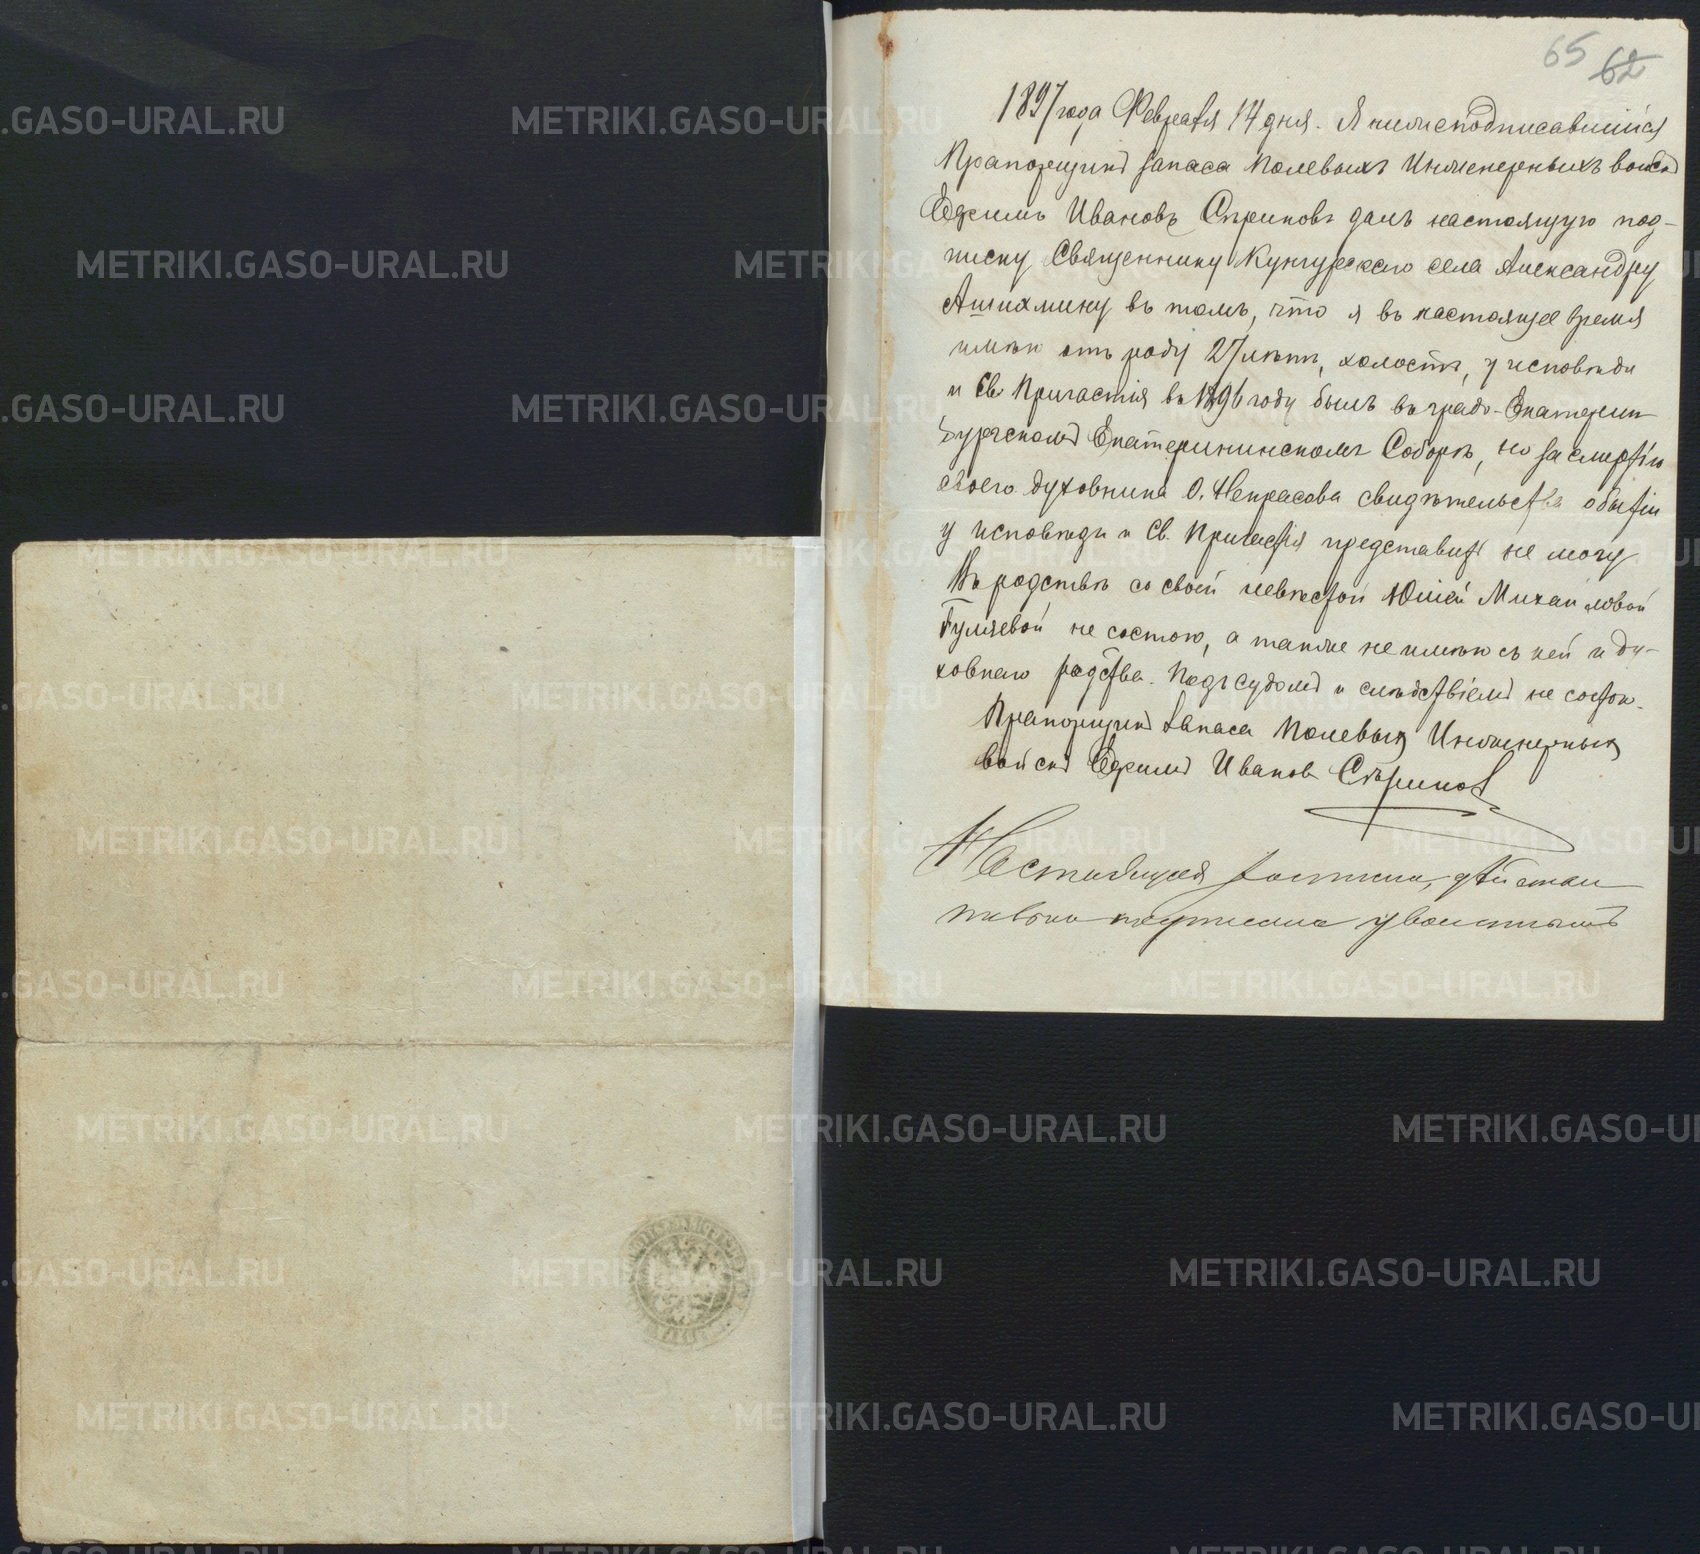 65 62
1897 года Февраля 14 дня. Я нижеподписавшійся
Прапорщикъ запаса Полевыхъ Инженерныхъ войскъ
Ефимъ Ивановъ далъ настоящую под-
писку Священнику Кунгурскаго села Александру
Ашихмину въ томъ, что я въ настоящее время
имѣю отъ роду 27 лѣтъ, холостъ, у исповѣди
и Св. Причастія въ 1896 году былъ въ градо-Екатерин
бургскомъ Екатерининскомъ Соборѣ, но за смертію
своего духовника О. Некрасова свидѣтельства о бытіи
у исповѣди и Св. Причастія представить не могу
Въ родствѣ со своей невѣстой Юліей Михайловой
Гуляевой не состою, а также не имѣю съ ней и ду-
ховнаго родства. Подъ судомъ и слѣдствіемъ не состою.
Прапорщикъ Запаса Полевых Инженерных
войскъ Ефимъ Иванов
Настоящая
METRIKI.GASO-URAL.RU